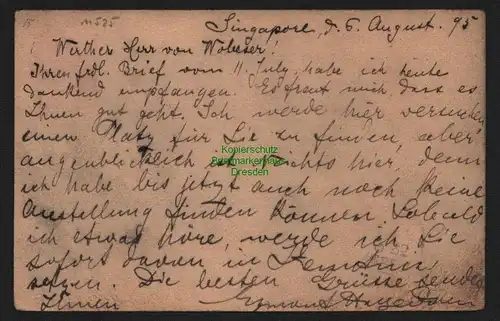 Singapore, d. 6. August. 95
Werther Herr von Wobeser!
Ihren frdl. Brief vom 11. July, habe ich heute
dankend empfangen. Es freut mich dass es
Ihnen gut geht. Ich werde hier versuchen
einen Platz für Sie zu finden, aber
augenblicklich ist nichts hier, denn
ich habe bis jetzt auch noch keine
Anstellung finden können. Sobald
ich etwas höre, werde ich Sie
sofort davon in Kenntniss
setzen. Die besten Grüsse sendet
Ihnen
Kopierschutz
Briefmarkenhaus
Dresden